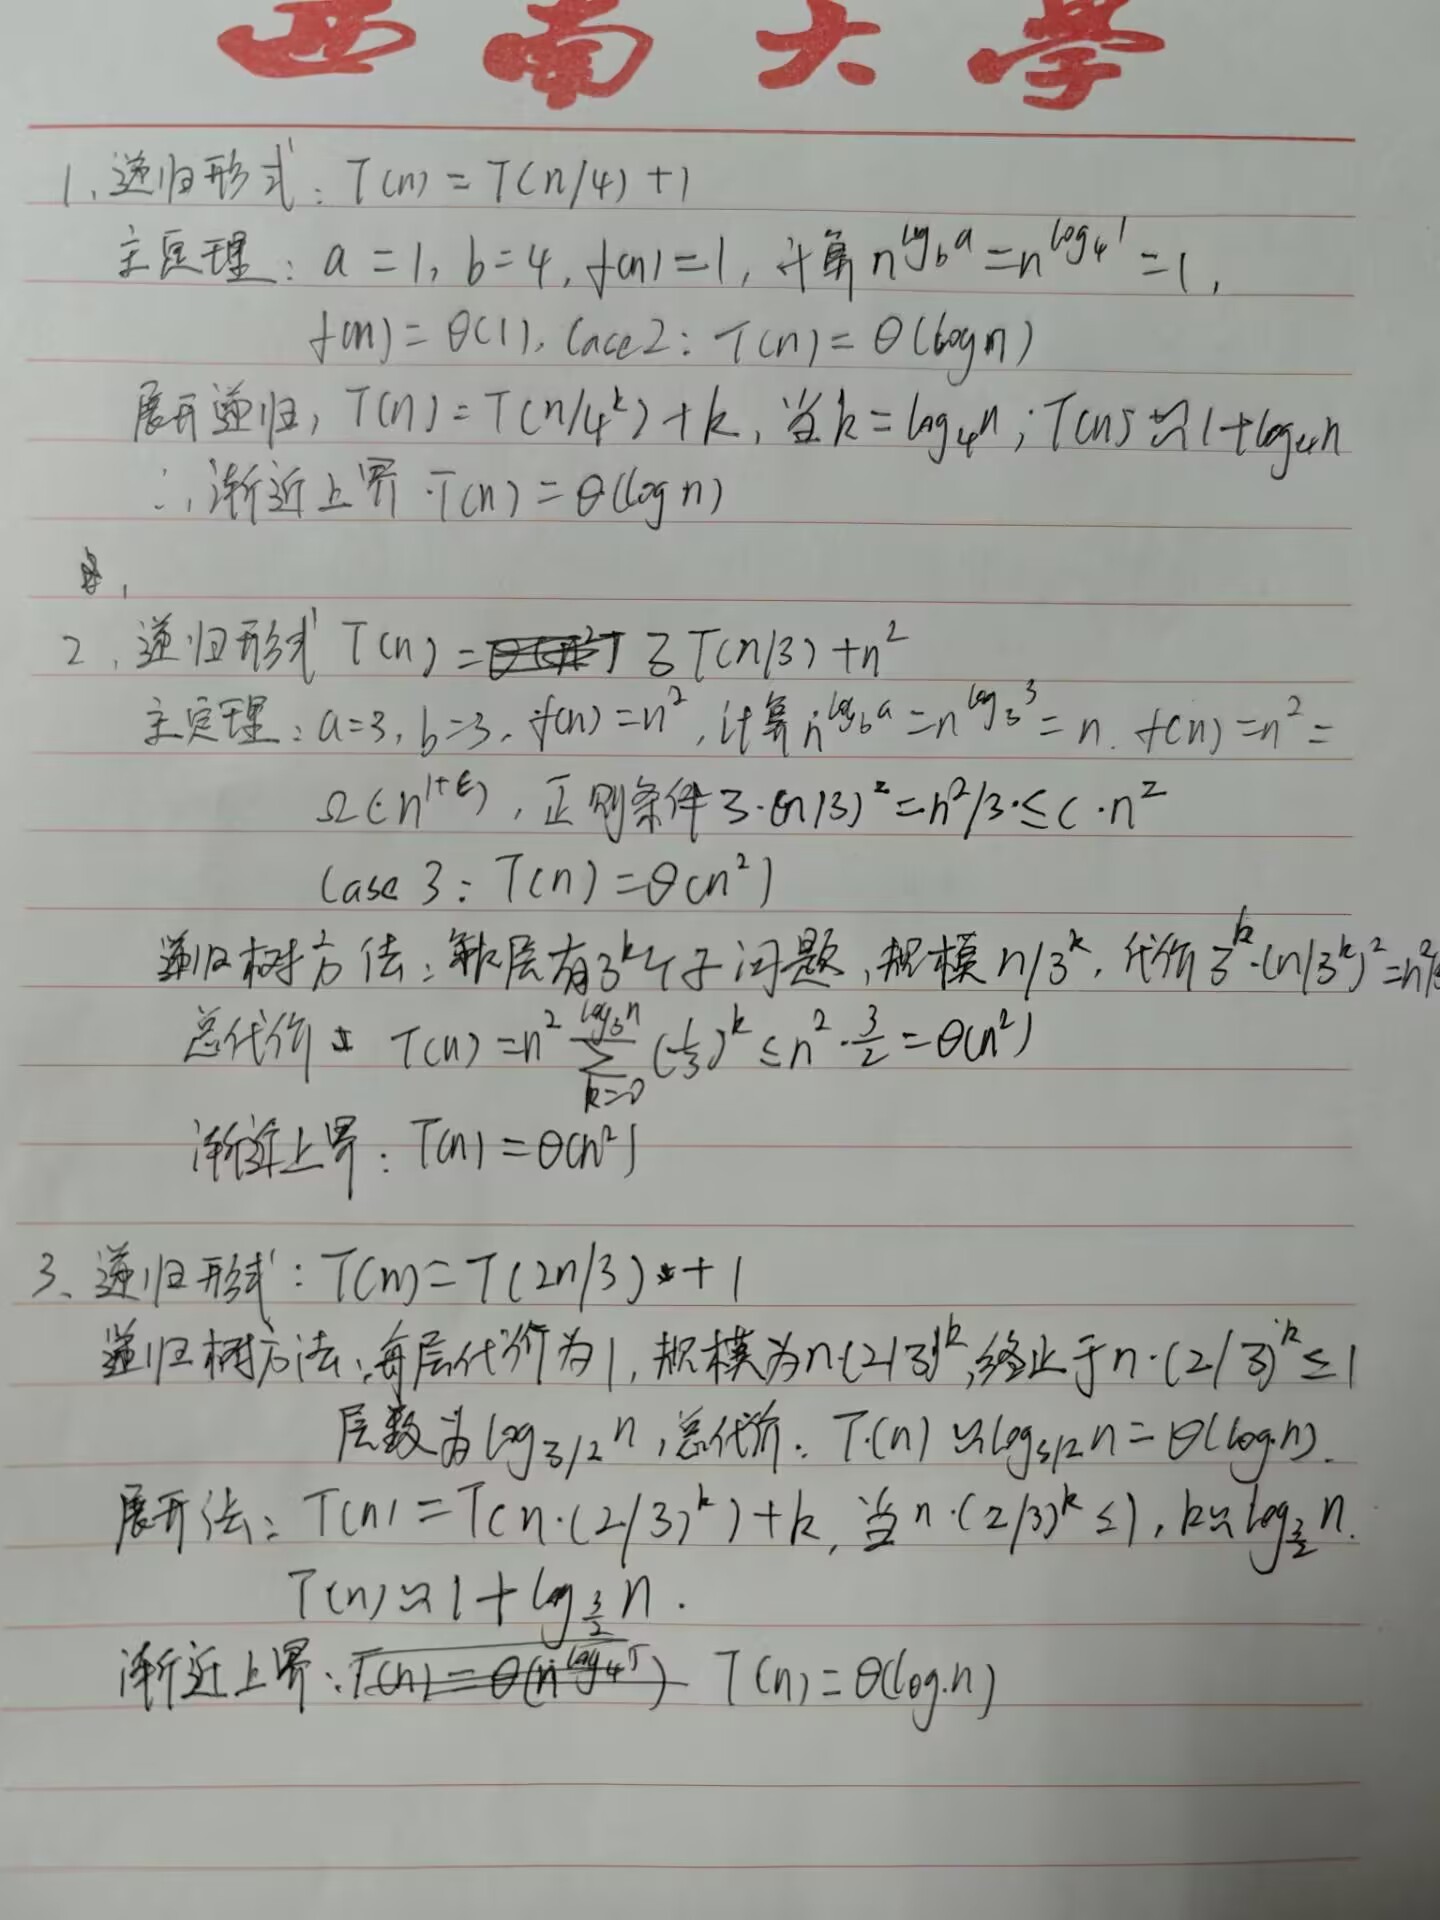 西南大学
1、递归形式：T(n)=T(n/4)+1
主定理：a=1，b=4，f(n)=1，计算n^{log_b a}=n^{log_4 1}=1，
f(n)=θ(1)，Case2：T(n)=θ(logn)
展开递归，T(n)=T(n/4^k)+k，当k=log_4 n；T(n)≈1+log_4 n
∴渐近上界T(n)=θ(logn)
2、递归形式 T(n)=3T(n/3)+n²
主定理：a=3，b=3，f(n)=n²，计算n^{log_b a}=n^{log_3 3}=n. f(n)=n²=
Ω(n^{1+ε})，正则条件3·(n/3)²=n²/3≤c·n²
Case 3：T(n)=θ(n²)
递归树方法：第k层有3^k个子问题，规模n/3^k，代价3^k·(n/3^k)²=n²/3
总代价 T(n)=n² \sum_{k=0}^{log_3 n}(1/3)^k≤n²·3/2=θ(n²)
渐近上界：T(n)=θ(n²)
3、递归形式：T(n)=T(2n/3)+1
递归树方法：每层代价为1，规模为n·(2/3)^k，终止于n·(2/3)^k≤1
层数为log_{3/2}n，总代价：T(n)≈log_{3/2}n=θ(logn).
展开法：T(n)=T(n·(2/3)^k)+k，当n·(2/3)^k≤1，k≈log_{3/2}n.
T(n)≈1+log_{3/2}n.
渐近上界：T(n)=θ(logn)